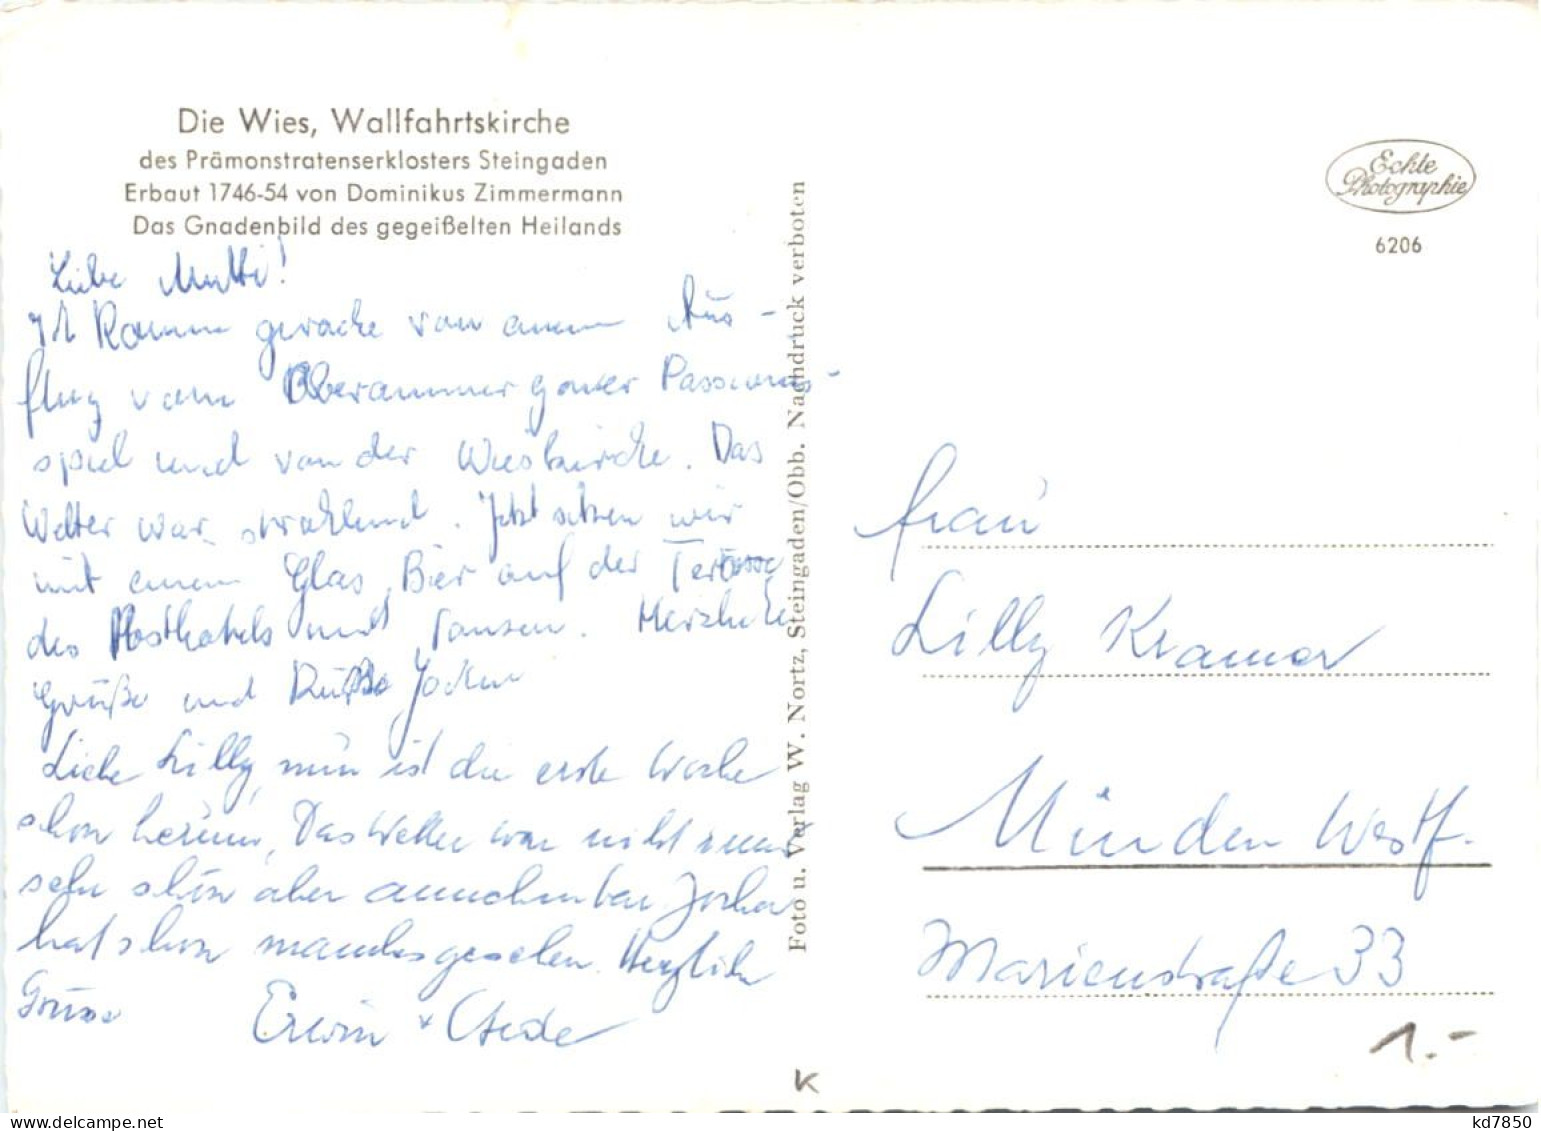 Die Wies, Wallfahrtskirche
des Prämonstratenserklosters Steingaden
Erbaut 1746-54 von Dominikus Zimmermann
Das Gnadenbild des gegeißelten Heilands
Liebe Mutti!
Ich komme gerade von einem Aus-
flug vom Oberammergauer Passions-
spiel und von der Wieskirche. Das
Wetter war strahlend. Jetzt sitzen wir
mit einem Glas Bier auf der Terasse
des Posthotels und tanzen. Herzliche
Grüße und Küße Jochen
Liebe Lilly, nun ist die erste Woche
schon herum, Das Wetter war nicht immer
sehr schön aber annehmbar. Jochen
hat schon manches gesehen. Herzliche
Grüsse Erwin +
Foto u. Verlag W. Nortz, Steingaden/Obb. Nachdruck verboten
Echte
Photographie
6206
Frau
Lilly Kramer
Minden Westf.
Marienstraße 33
1.-
K
kd7850